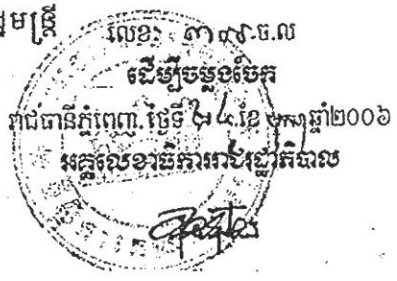 មន្ត្រី
លេខ: ៣៨៩.ច.ល
ដើម្បីចម្លងចែក
រាជធានីភ្នំពេញ.ថ្ងៃទី ២៤.ខែ ឆ្នាំ២០០៦
អគ្គលេខាធិការរាជរដ្ឋាភិបាល